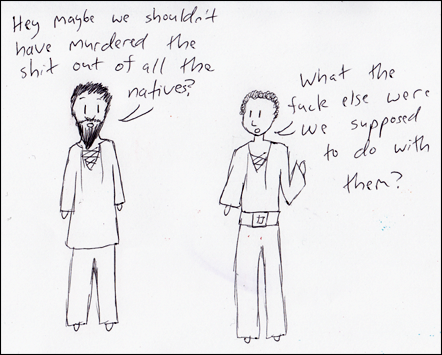 Hey maybe we shouldn't
have murdered the
shit out of all the
natives?
What the
fuck else were
we supposed
to do with
them?